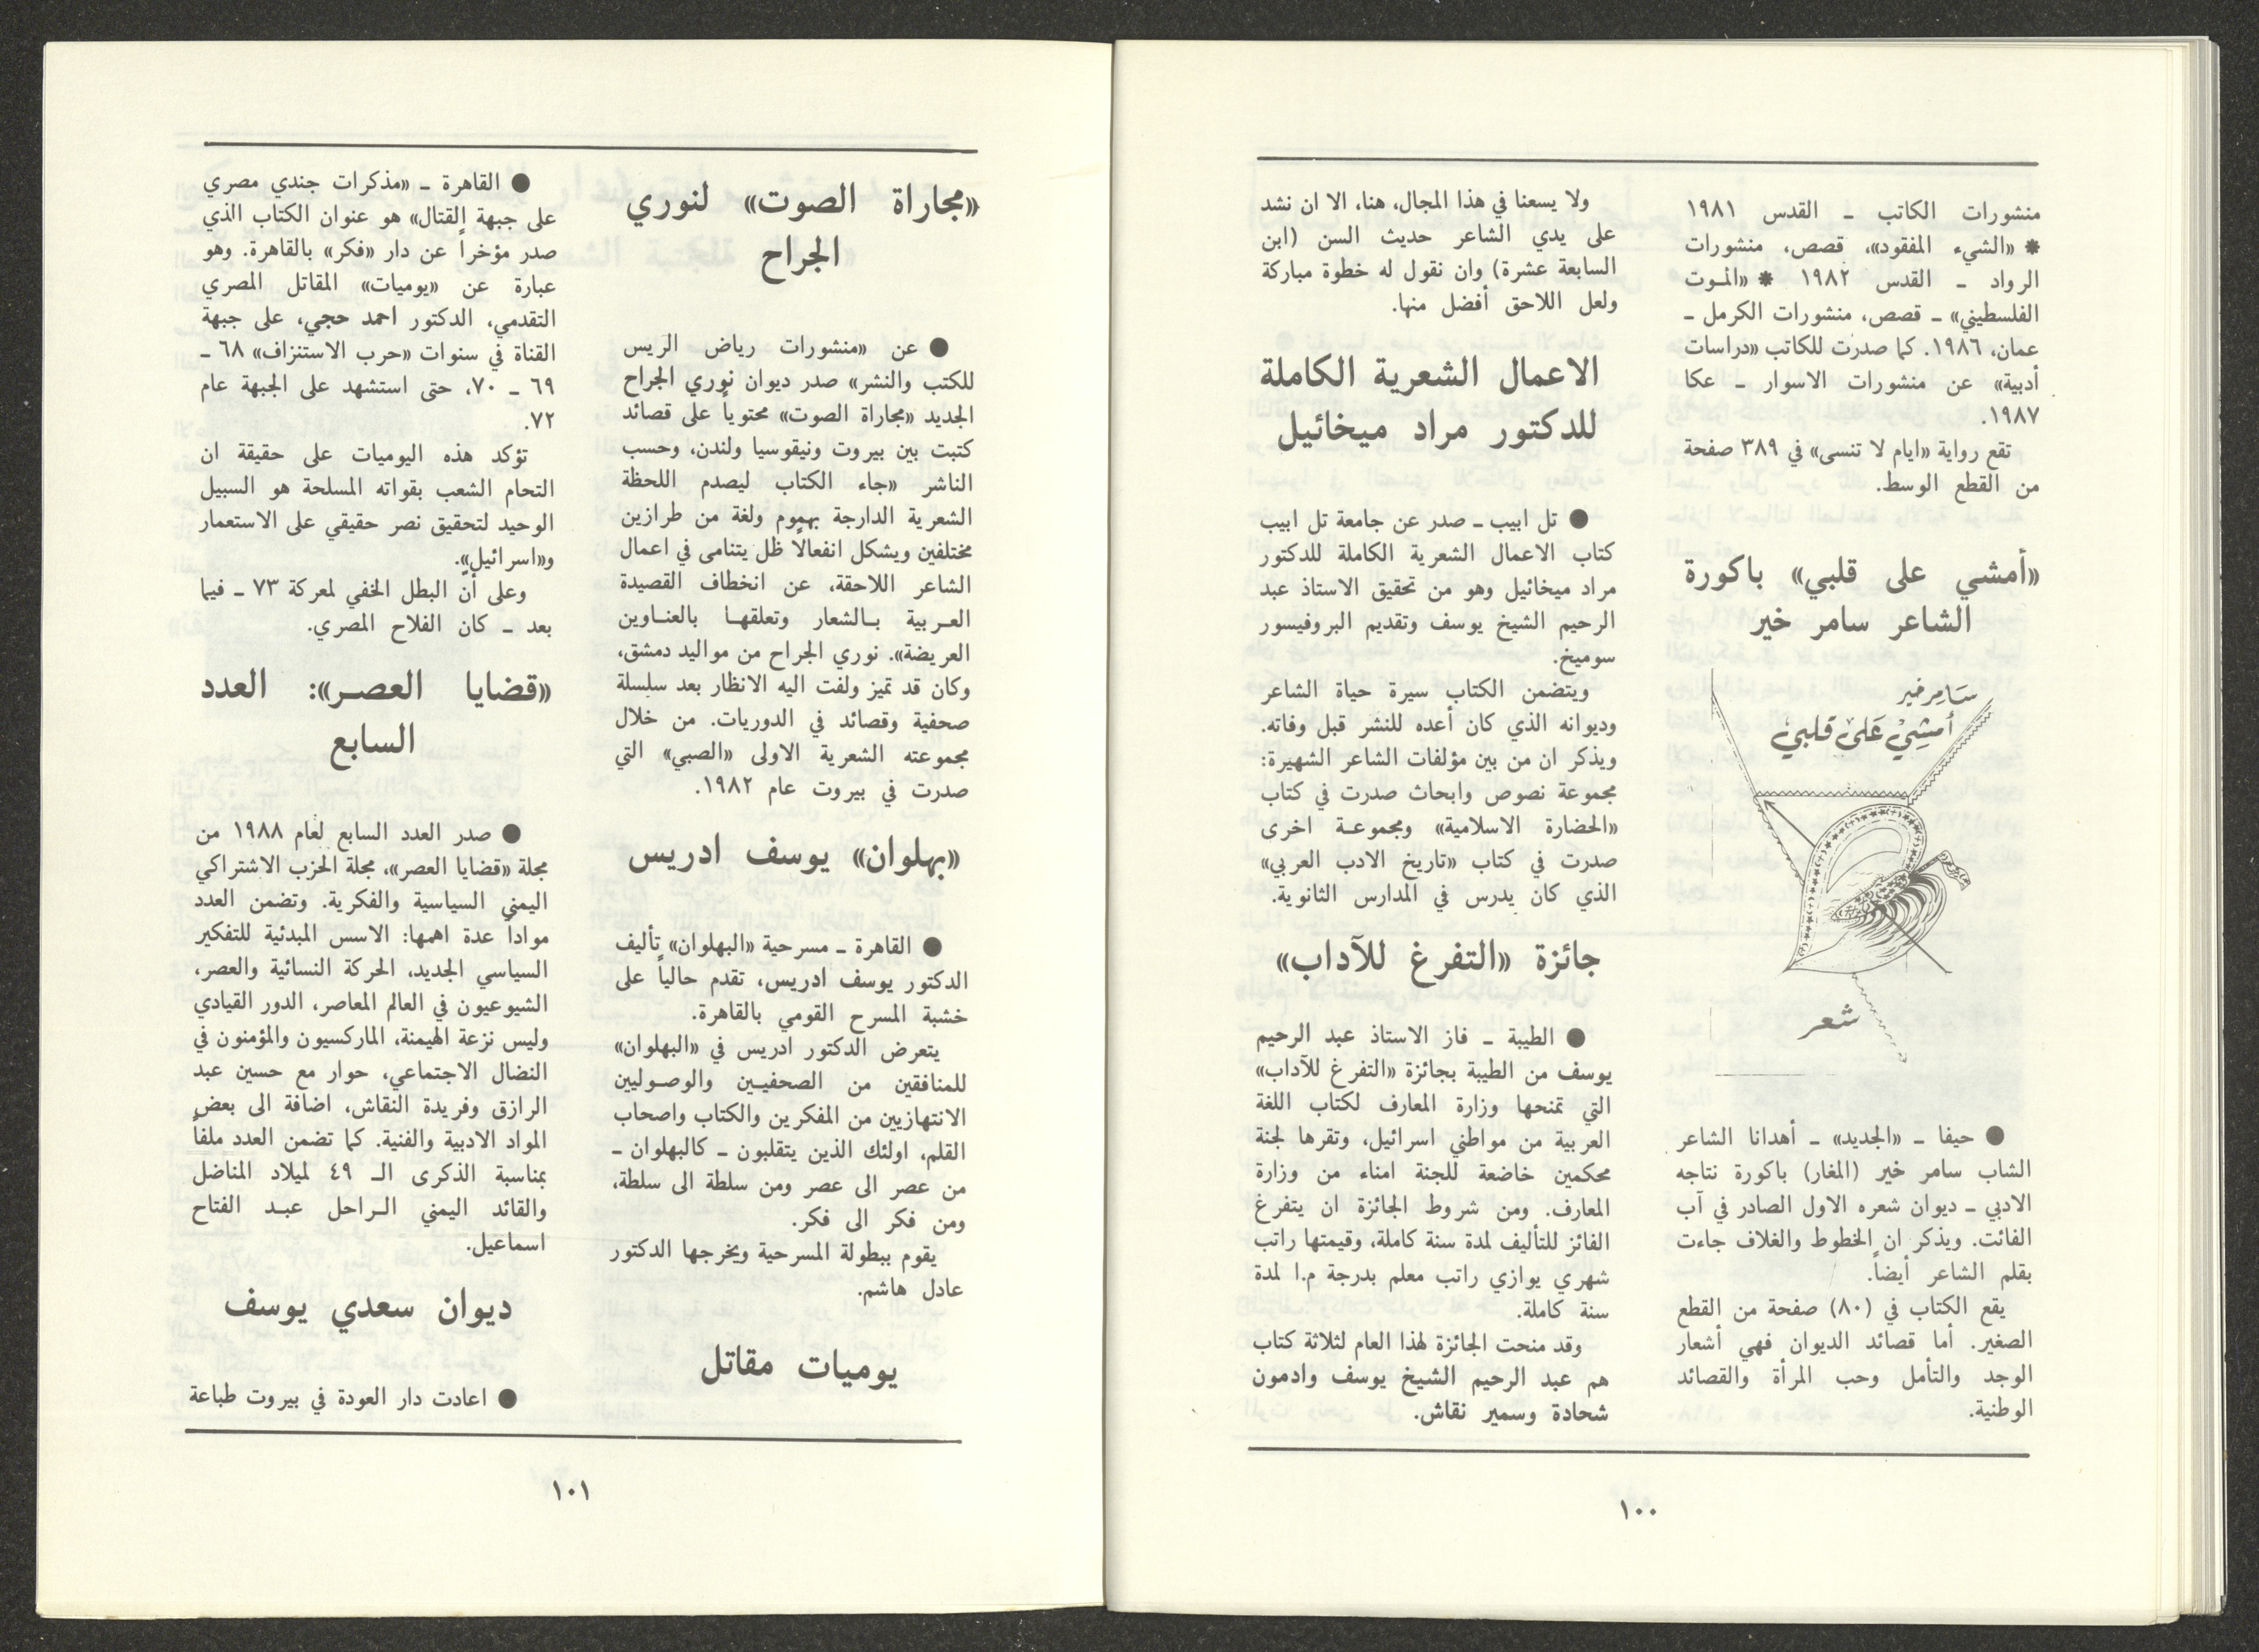 منشورات الكاتب ـ القدس ١٩٨١
* «الشيء المفقود»، قصص، منشورات
الرواد ـ القدس ١٩٨٢ * «المـوت
الفلسطيني» ـ قصص، منشورات الكرمل ـ
عمان، ١٩٨٦. كما صدرت للكاتب «دراسات
أدبية» عن منشورات الاسوار ـ عكا
١٩٨٧.
تقع رواية «ايام لا تنسى» في ٣٨٩ صفحة
من القطع الوسط.
«أمشي على قلبي» باكورة
الشاعر سامر خير
سَامِر خير
أمشِيْ عَلىْ قلبيْ
شعر
● حيفا ـ «الجديد» ـ أهدانا الشاعر
الشاب سامر خير (المغار) باكورة نتاجه
الادبي ـ ديوان شعره الاول الصادر في آب
الفائت. ويذكر ان الخطوط والغلاف جاءت
بقلم الشاعر أيضاً.
يقع الكتاب في (٨٠) صفحة من القطع
الصغير. أما قصائد الديوان فهي أشعار
الوجد والتأمل وحب المرأة والقصائد
الوطنية.
ولا يسعنا في هذا المجال، هنا، الا ان نشد
على يدي الشاعر حديث السن (ابن
السابعة عشرة) وان نقول له خطوة مباركة
ولعل اللاحق أفضل منها.
الاعمال الشعرية الكاملة
للدكتور مراد ميخائيل
● تل ابيب ـ صدر عن جامعة تل ابيب
كتاب الاعمال الشعرية الكاملة للدكتور
مراد ميخائيل وهو من تحقيق الاستاذ عبد
الرحيم الشيخ يوسف وتقديم البروفيسور
سوميخ.
ويتضمن الكتاب سيرة حياة الشاعر
وديوانه الذي كان أعده للنشر قبل وفاته.
ويذكر ان من بين مؤلفات الشاعر الشهيرة:
مجموعة نصوص وابحاث صدرت في كتاب
«الحضارة الاسلامية» ومجموعـة اخرى
صدرت في كتاب «تاريخ الادب العربي»
الذي كان يدرس في المدارس الثانوية.
جائزة «التفرغ للآداب»
● الطيبة ـ فاز الاستاذ عبد الرحيم
يوسف من الطيبة بجائزة «التفرغ للآداب»
التي تمنحها وزارة المعارف لكتاب اللغة
العربية من مواطني اسرائيل، وتقرها لجنة
محكمين خاضعة للجنة امناء من وزارة
المعارف. ومن شروط الجائزة ان يتفرغ
الفائز للتأليف لمدة سنة كاملة، وقيمتها راتب
شهري يوازي راتب معلم بدرجة م.ا لمدة
سنة كاملة.
وقد منحت الجائزة لهذا العام لثلاثة كتاب
هم عبد الرحيم الشيخ يوسف وادمون
شحادة وسمير نقاش.
١٠٠
«مجاراة الصوت» لنوري
الجراح
● عن «منشورات رياض الريس
للكتب والنشر» صدر ديوان نوري الجراح
الجديد «مجاراة الصوت» محتوياً على قصائد
كتبت بين بيروت ونيقوسيا ولندن، وحسب
الناشر «جاء الكتاب ليصدم اللحظة
الشعرية الدارجة بهموم ولغة من طرازين
مختلفين ويشكل انفعالاً ظل يتنامى في اعمال
الشاعر اللاحقة، عن انخطاف القصيدة
العـربية بـالشعار وتعلقهـا بالعنـاوين
العريضة». نوري الجراح من مواليد دمشق،
وكان قد تميز ولفت اليه الانظار بعد سلسلة
صحفية وقصائد في الدوريات. من خلال
مجموعته الشعرية الاولى «الصبي» التي
صدرت في بيروت عام ١٩٨٢.
«بهلوان» يوسف ادريس
● القاهرة ـ مسرحية «البهلوان» تأليف
الدكتور يوسف ادريس، تقدم حالياً على
خشبة المسرح القومي بالقاهرة.
يتعرض الدكتور ادريس في «البهلوان»
للمنافقين من الصحفيـين والوصـوليين
الانتهازيين من المفكرين والكتاب واصحاب
القلم، اولئك الذين يتقلبون ـ كالبهلوان ـ
من عصر الى عصر ومن سلطة الى سلطة،
ومن فكر الى فكر.
يقوم ببطولة المسرحية ويخرجها الدكتور
عادل هاشم.
يوميات مقاتل
● القاهرة ـ «مذكرات جندي مصري
على جبهة القتال» هو عنوان الكتاب الذي
صدر مؤخراً عن دار «فكر» بالقاهرة. وهو
عبارة عن «يوميات» المقاتل المصري
التقدمي، الدكتور احمد حجي، على جبهة
القناة في سنوات «حرب الاستنزاف» ٦٨ ـ
٦٩ ـ ٧٠، حتى استشهد على الجبهة عام
٧٢.
تؤكد هذه اليوميات على حقيقة ان
التحام الشعب بقواته المسلحة هو السبيل
الوحيد لتحقيق نصر حقيقي على الاستعمار
و«اسرائيل».
وعلى أنّ البطل الخفي لمعركة ٧٣ ـ فيما
بعد ـ كان الفلاح المصري.
«قضايا العصـر»: العدد
السابع
● صدر العدد السابع لعام ١٩٨٨ من
مجلة «قضايا العصر»، مجلة الحزب الاشتراكي
اليمني السياسية والفكرية. وتضمن العدد
مواداً عدة اهمها: الاسس المبدئية للتفكير
السياسي الجديد، الحركة النسائية والعصر،
الشيوعيون في العالم المعاصر، الدور القيادي
وليس نزعة الهيمنة، الماركسيون والمؤمنون في
النضال الاجتماعي، حوار مع حسين عبد
الرازق وفريدة النقاش، اضافة الى بعض
المواد الادبية والفنية. كما تضمن العدد ملفاً
بمناسبة الذكرى الـ ٤٩ لميلاد المناضل
والقائد اليمني الـراحل عبـد الفتاح
اسماعيل.
ديوان سعدي يوسف
● اعادت دار العودة في بيروت طباعة
١٠١